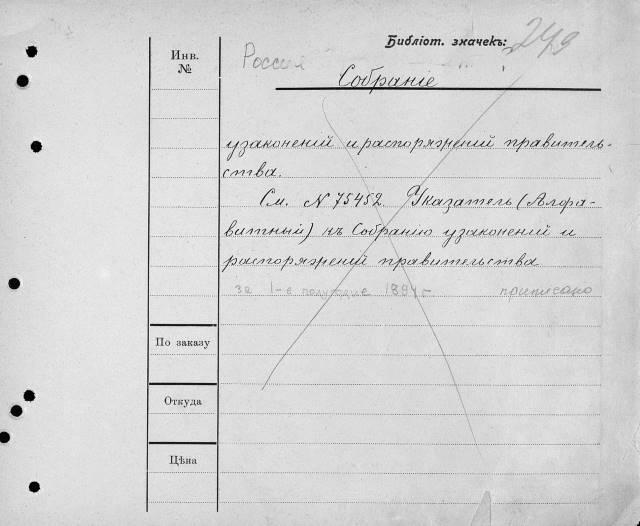 Библіот. значекъ: 249
Инв. №
Россия
Собраніе
узаконений и распоряжений правитель-
ства.
См. N 75452. Указатель (Алфа-
витный) къ Собранию узаконений и
распоряжений правительства
за 1-е полугодие 1894 г. приписано
По заказу
Откуда
Цѣна